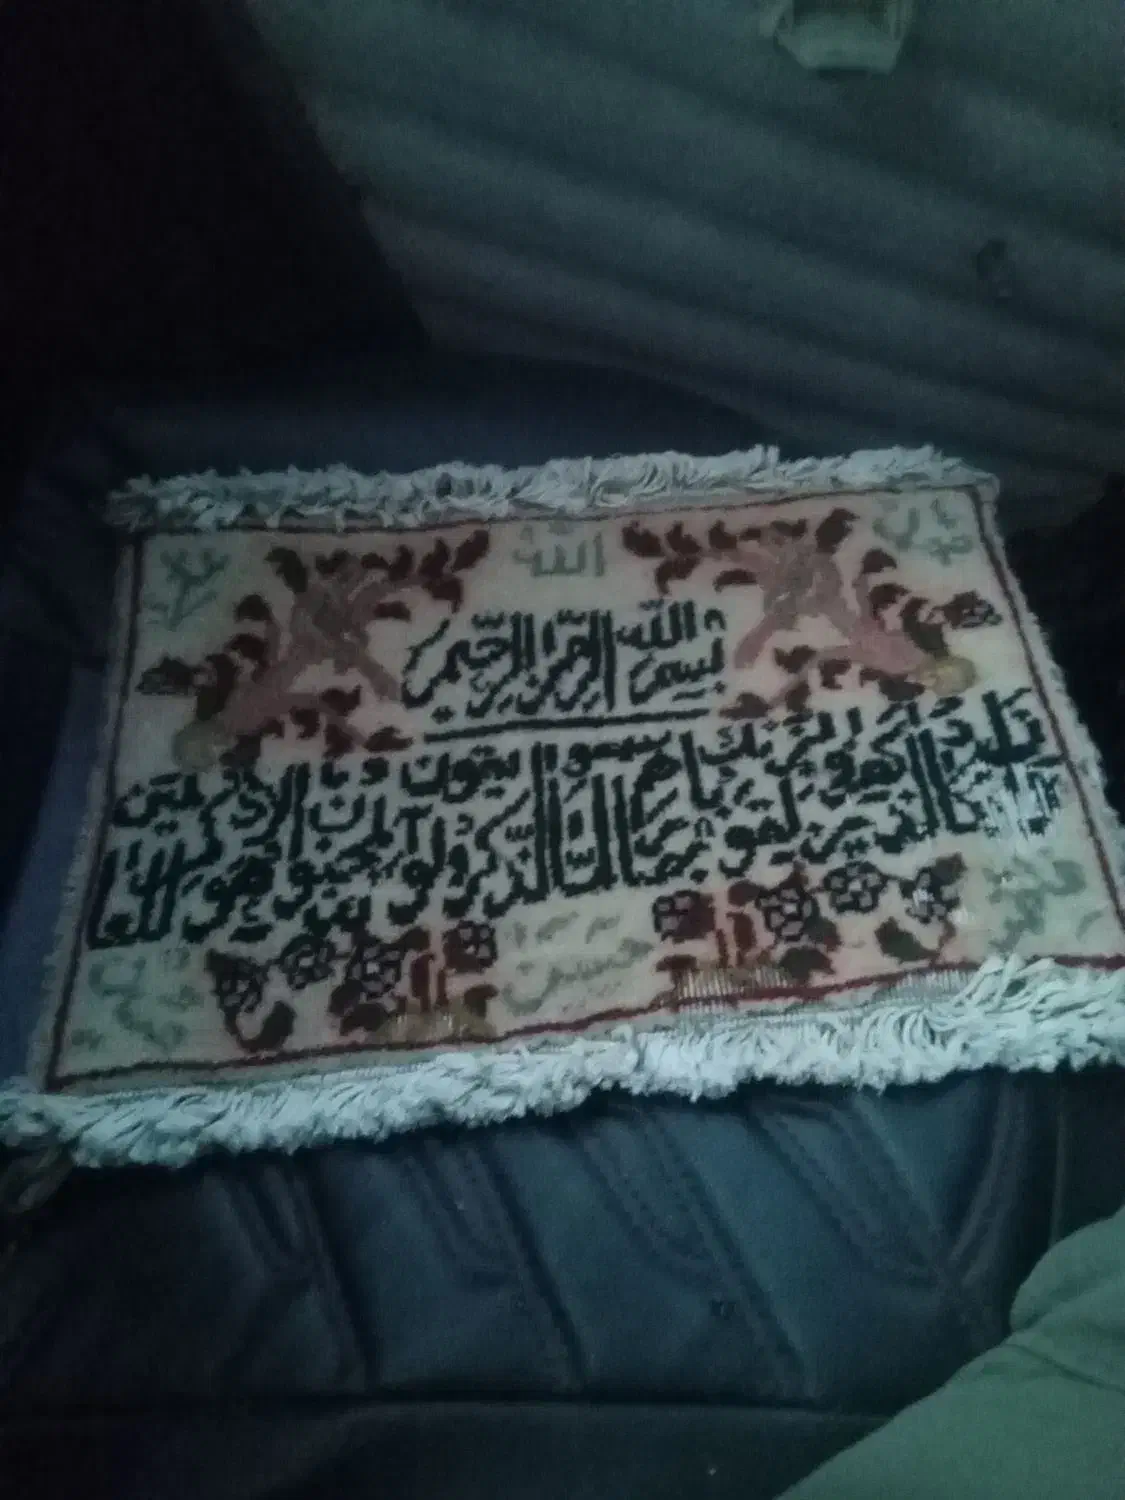 الله
بسم الله الرحمن الرحيم
يكاد الذين كفروا ليزلقونك بابصارهم لما سمعوا الذكر و يقولون انه لمجنون و ما هو الا ذكر للعالمين
فاطمه
حسين